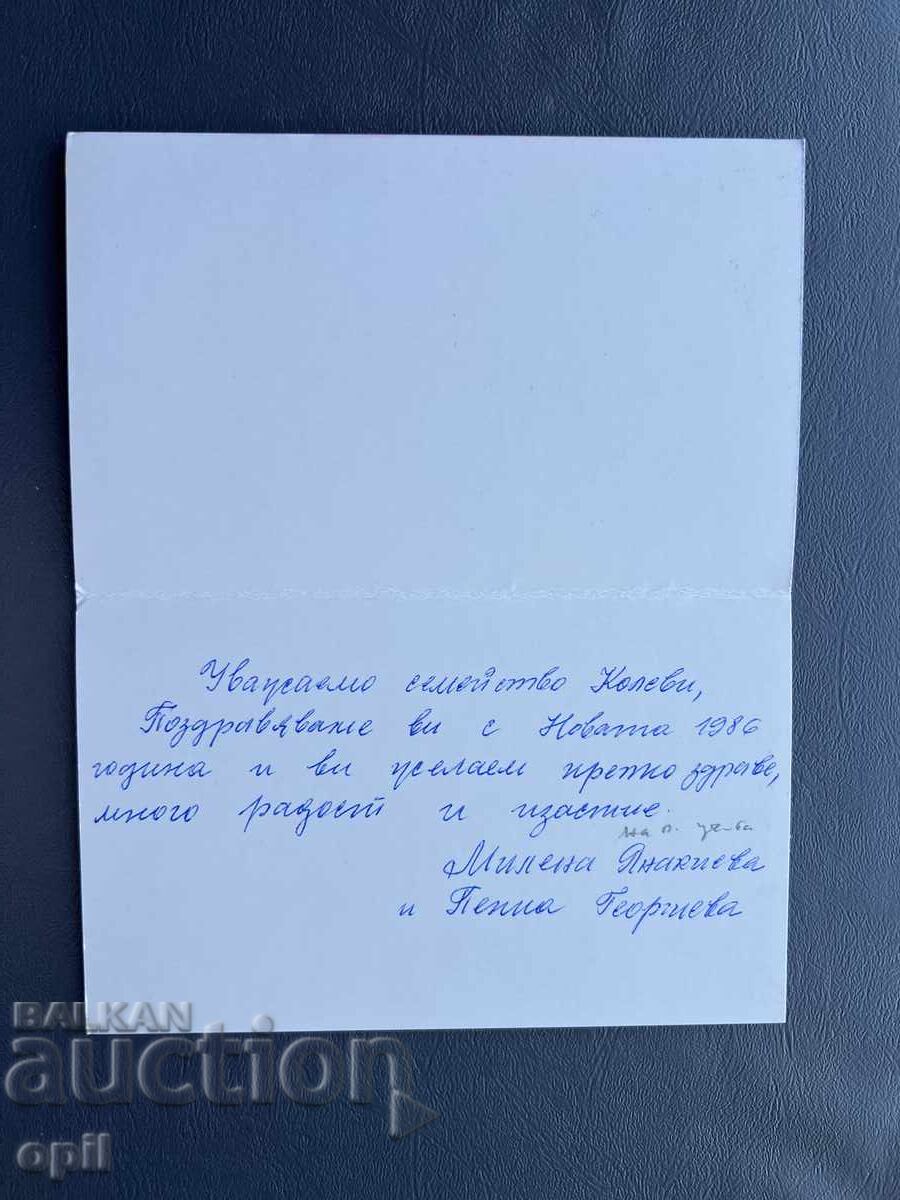 Уважаемо семейство Колеви,
Поздравяваме ви с Новата 1986
година и ви желаем крепко здраве,
много радост и щастие.
Милена Янакиева
и Пенка Георгиева
BALKAN
auction
opil